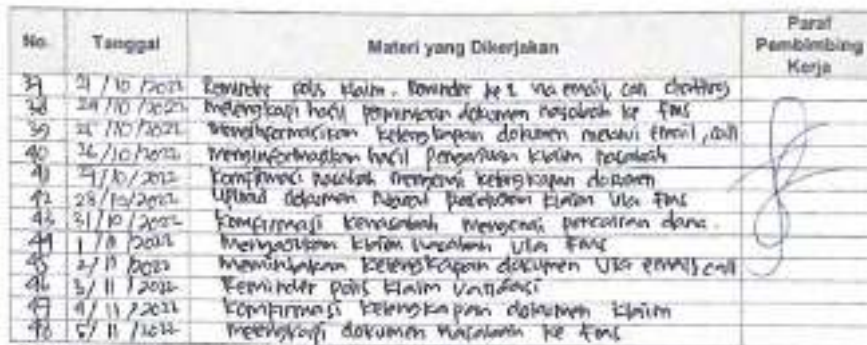 No. Tanggal Materi yang Dikerjakan Paraf Pembimbing Kerja
37 21/10/2022 Reminder polis klaim. Reminder ke 2 via email, call chatting
38 24/10/2022 melengkapi hasil permintaan dokumen nasabah ke fms
39 25/10/2022 Menginformasikan kelengkapan dokumen melalui email, call
40 26/10/2022 menginformasikan hasil Pengajuan klaim nasabah
41 27/10/2022 komfirmasi nasabah mengenai kelengkapan dokumen
42 28/10/2022 Upload dokumen klaim via fms
43 31/10/2022 komfirmasi kenasabah mengenai pencairan dana.
44 1/11/2022 klaim nasabah via fms
45 2/11/2022 kelengkapan dokumen via email, call
46 3/11/2022 Reminder polis klaim validasi
47 4/11/2022 komfirmasi kelengkapan dokumen klaim
48 5/11/2022 melengkapi dokumen nasabah ke fms